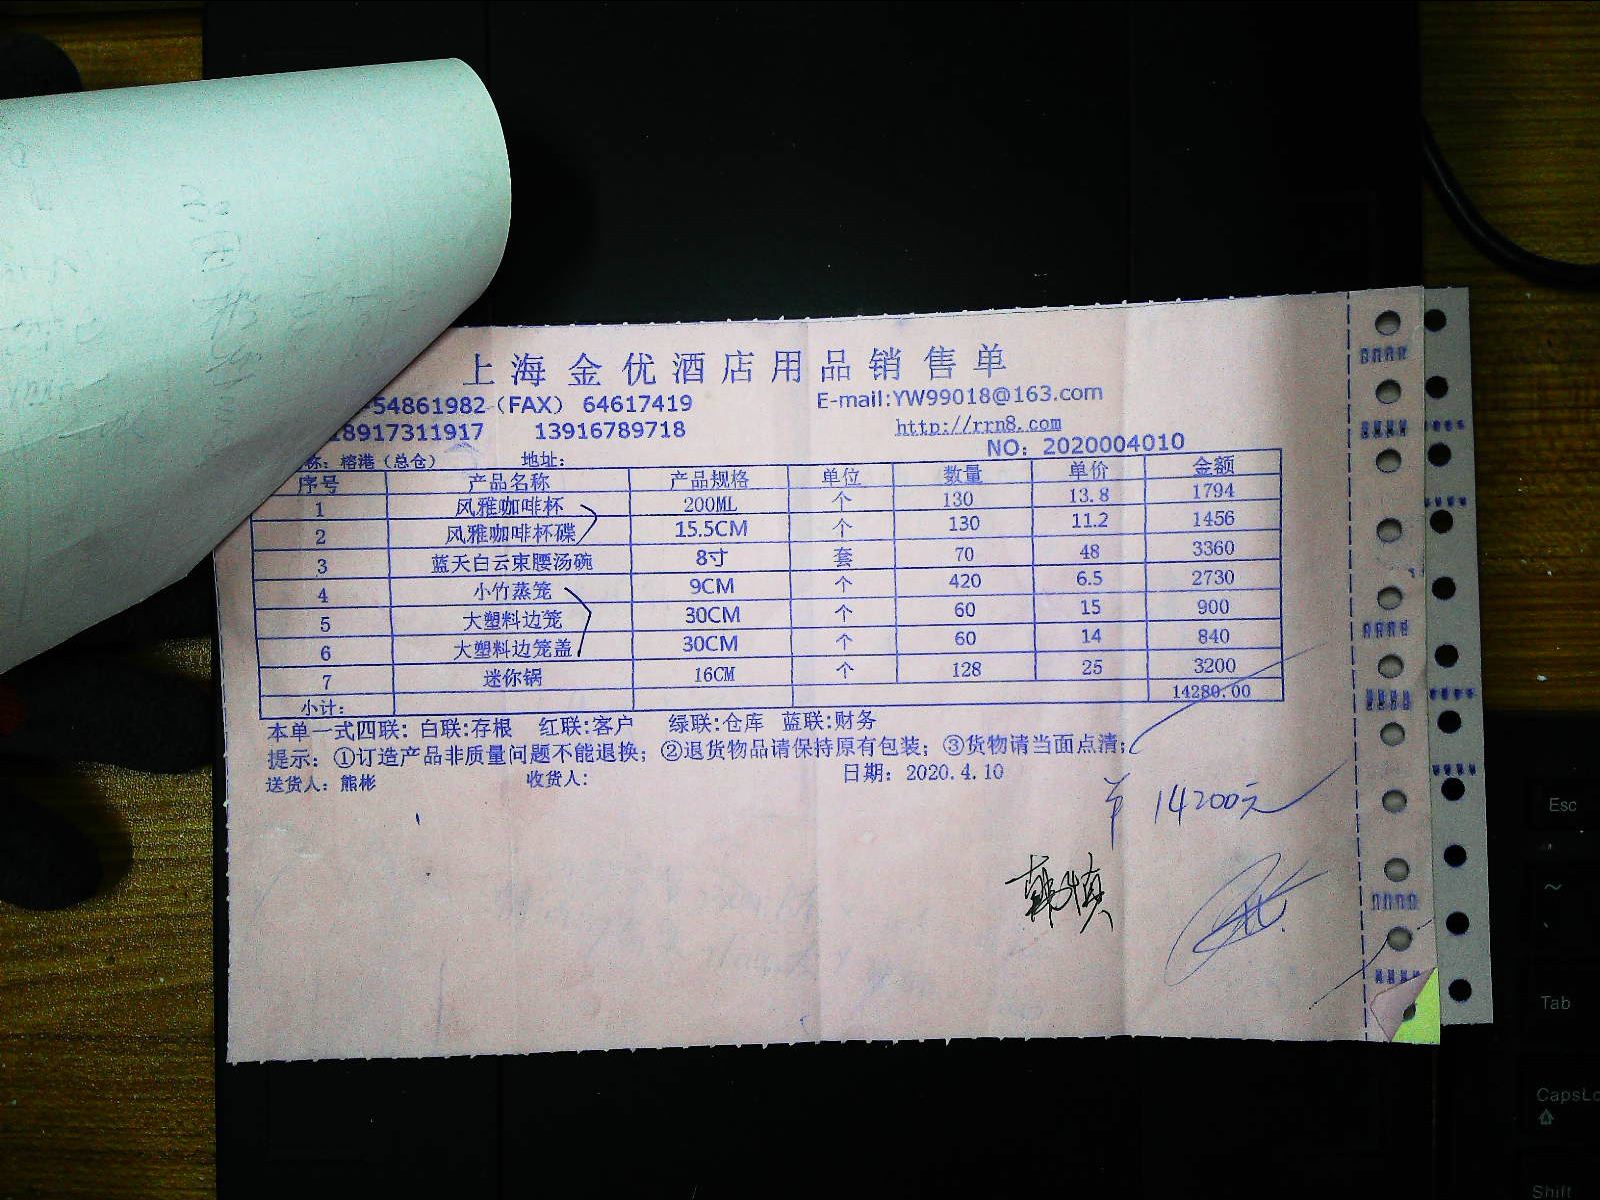 上海金优酒店用品销售单
-54861982（FAX） 64617419 E-mail:YW99018@163.com
18917311917 13916789718 http://rrn8.com
称：榕港（总仓） 地址： NO：2020004010
序号 产品名称 产品规格 单位 数量 单价 金额
1 风雅咖啡杯 200ML 个 130 13.8 1794
2 风雅咖啡杯碟 15.5CM 个 130 11.2 1456
3 蓝天白云束腰汤碗 8寸 套 70 48 3360
4 小竹蒸笼 9CM 个 420 6.5 2730
5 大塑料边笼 30CM 个 60 15 900
6 大塑料边笼盖 30CM 个 60 14 840
7 迷你锅 16CM 个 128 25 3200
小计： 14280.00
本单一式四联：白联:存根 红联:客户 绿联:仓库 蓝联:财务
提示：①订造产品非质量问题不能退换；②退货物品请保持原有包装；③货物请当面点清；
送货人：熊彬 收货人： 日期：2020.4.10
14200元
韩慎
Esc
Tab
CapsLo
Shift